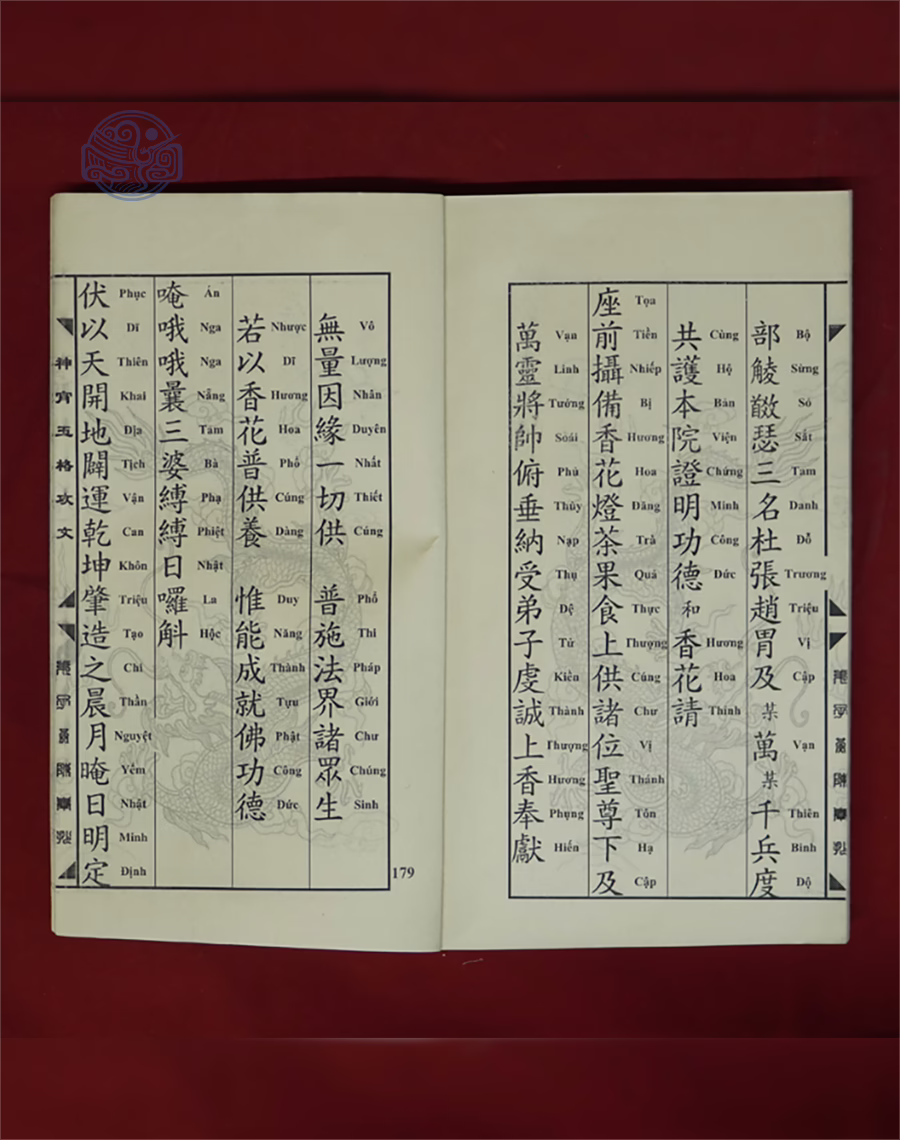 部瑟三名杜張趙胃及某萬某千兵度
Bộ Sừng Số Sắt Tam Danh Đỗ Trương Triệu Vị Cập Vạn Thiên Binh Độ
共護本院證明功德和香花請
Cùng Hộ Bản Viện Chứng Minh Công Đức Hương Hoa Thỉnh
座前攝備香花燈茶果食上供諸位聖尊下及
Tọa Tiền Nhiếp Bị Hương Hoa Đăng Trà Quả Thực Thượng Cúng Chư Vị Thánh Tôn Hạ Cập
萬靈將帥俯垂納受弟子虔誠上香奉獻
Vạn Linh Tướng Soái Phủ Thùy Nạp Thụ Đệ Tử Kiền Thành Thượng Hương Phụng Hiến
無量因緣一切供 普施法界諸眾生
Vô Lượng Nhân Duyên Nhất Thiết Cúng Phổ Thi Pháp Giới Chư Chúng Sinh
若以香花普供養 惟能成就佛功德
Nhược Dĩ Hương Hoa Phổ Cúng Dàng Duy Năng Thành Tựu Phật Công Đức
唵哦哦曩三婆縛縛日囉斛
Án Nga Nga Nẵng Tam Bà Phạ Phiệt Nhật La Hộc
伏以天開地闢運乾坤肇造之晨月晻日明定
Phục Dĩ Thiên Khai Địa Tịch Vận Can Khôn Triệu Tạo Chi Thần Nguyệt Yểm Nhật Minh Định
神宵玉格攻文
179